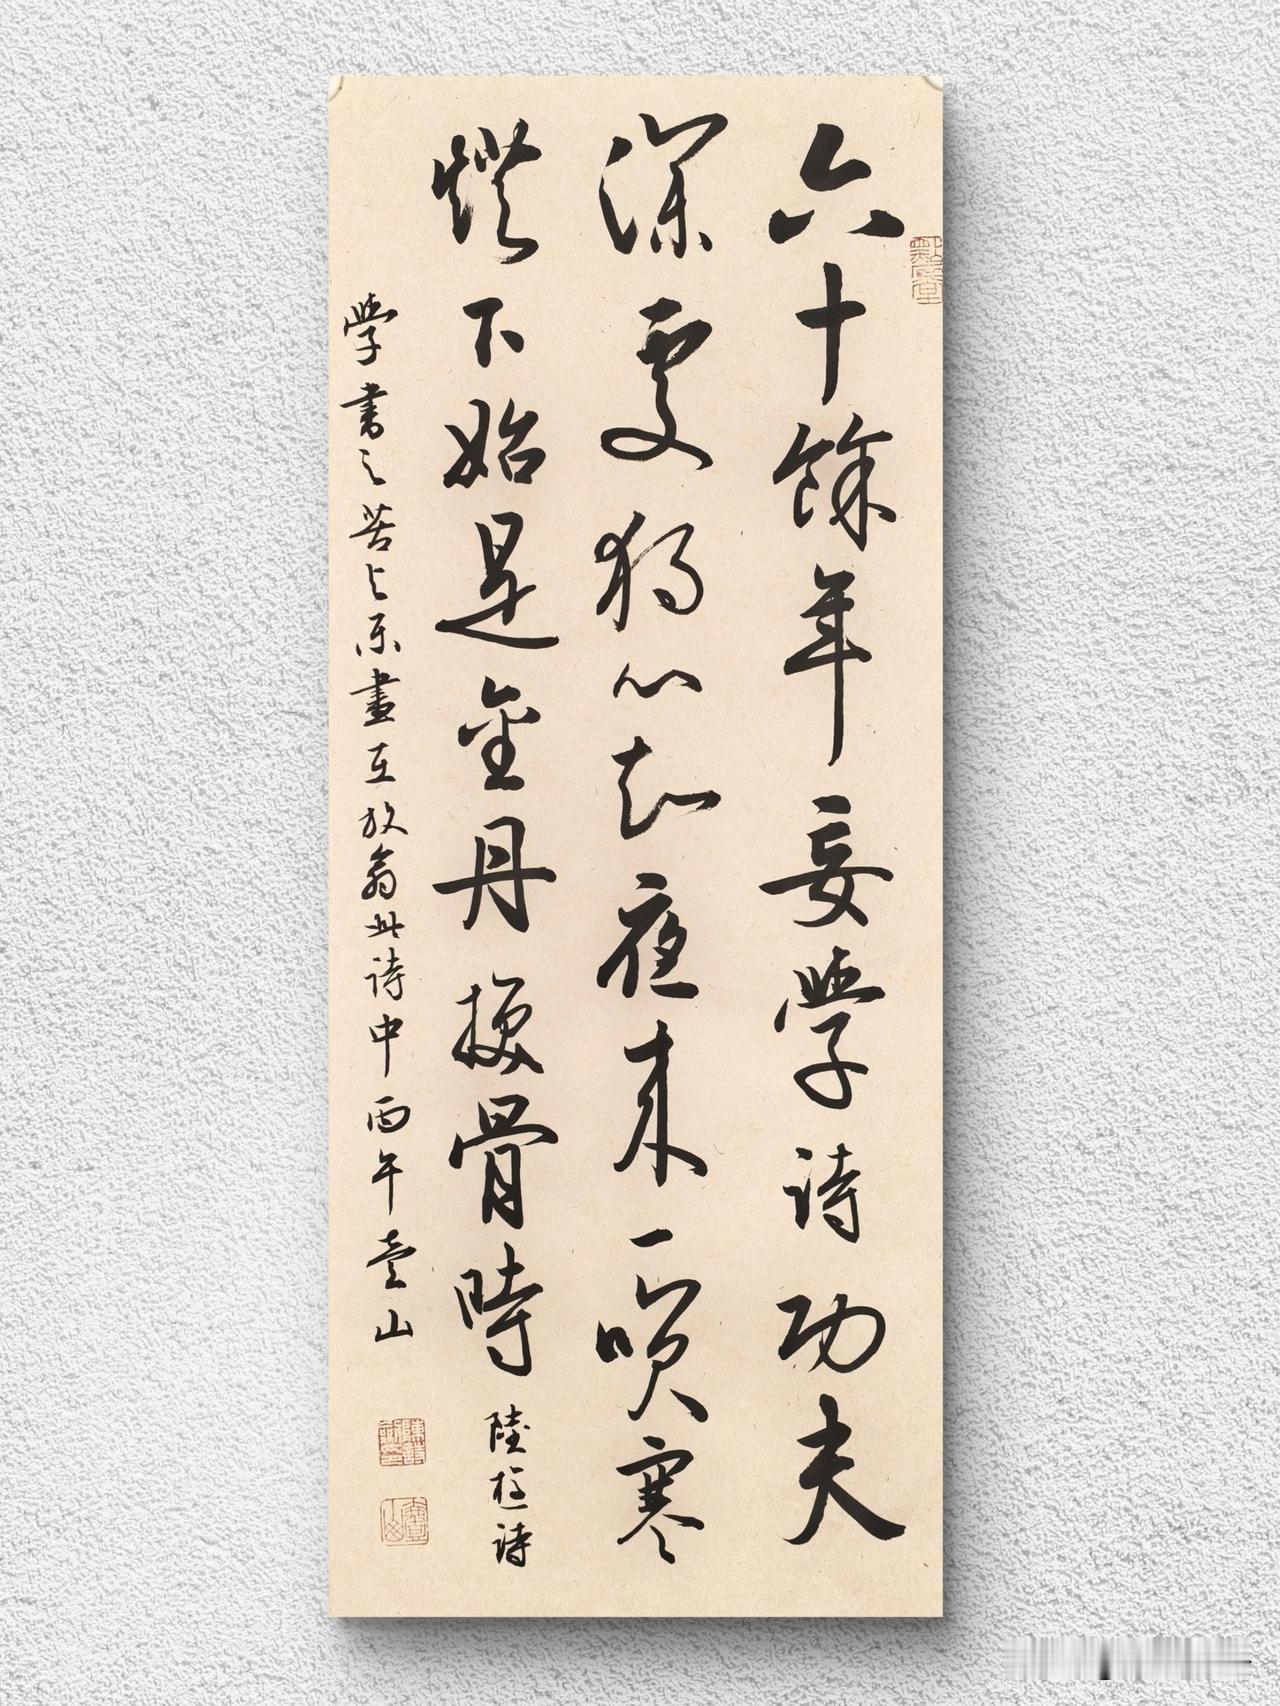 六十餘年妄學詩功夫
深處獨心知夜來一咲寒
燈下始是金丹換骨時
陸游詩
學書之苦與樂盡在放翁此詩中 丙午 山